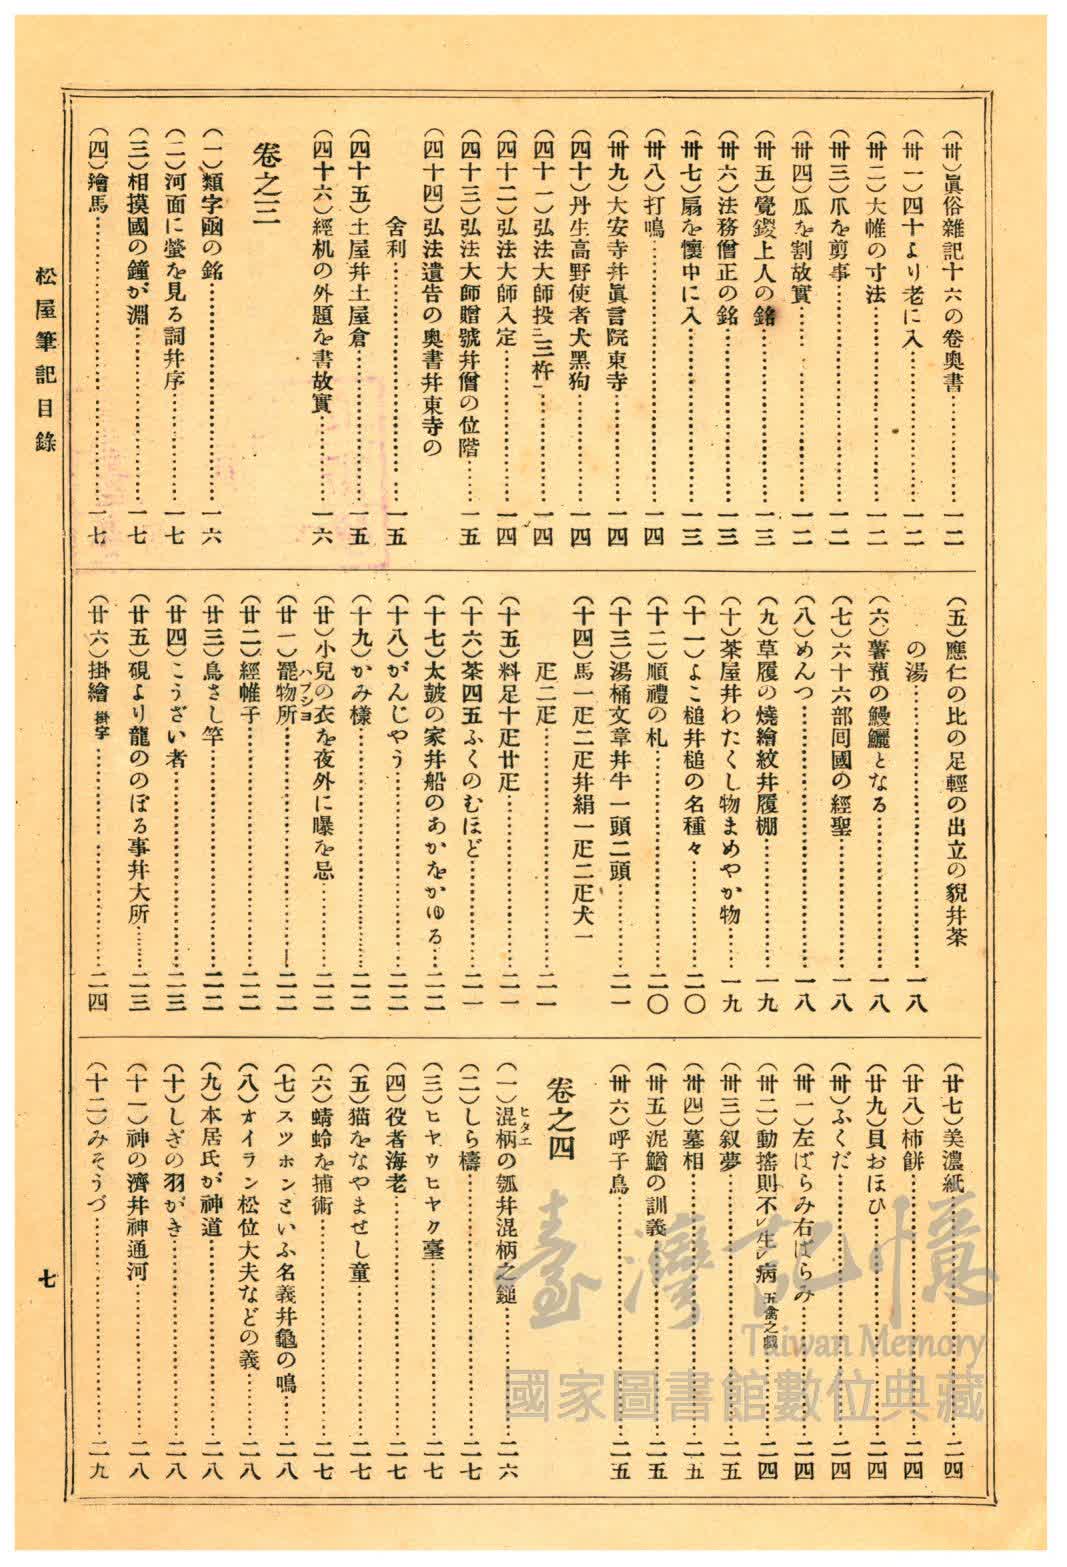 (卅)眞俗雜記十六の卷奧書…………一二
(卅一)四十より老に入…………一二
(卅二)大帷の寸法…………一二
(卅三)爪を剪事…………一二
(卅四)瓜を割故實…………一二
(卅五)覺鑁上人の銘…………一三
(卅六)法務僧正の銘…………一三
(卅七)扇を懷中に入…………一三
(卅八)打鳴…………一四
(卅九)大安寺幷眞言院東寺…………一四
(四十)丹生高野使者犬黑狗…………一四
(四十一)弘法大師投二三杵一…………一四
(四十二)弘法大師入定…………一四
(四十三)弘法大師贈號幷僧の位階……一五
(四十四)弘法遺告の奧書幷東寺の
舍利…………一五
(四十五)土屋幷土屋倉…………一五
(四十六)經机の外題を書故實…………一六
卷之三
(一)類字凾の銘…………一六
(二)河面に螢を見る詞幷序…………一七
(三)相摸國の鐘が淵…………一七
(四)繪馬…………一七
(五)應仁の比の足輕の出立の貌幷茶
の湯…………一八
(六)薯蕷の鰻鱺となる…………一八
(七)六十六部囘國の經聖…………一八
(八)めんつ…………一八
(九)草履の燒繪紋幷履棚…………一九
(十)茶屋幷わたくし物まめやか物……一九
(十一)よこ槌幷槌の名種々…………二〇
(十二)順禮の札…………二〇
(十三)湯桶文章幷牛一頭二頭…………二一
(十四)馬一疋二疋幷絹一疋二疋犬一
疋二疋…………二一
(十五)料足十疋廿疋…………二一
(十六)茶四五ふくのむほど…………二一
(十七)太皷の家幷船のあかをかゆる……二二
(十八)がんじやう…………二二
(十九)かみ樣…………二二
(廿)小兒の衣を夜外に曝を忌…………二二
(廿一)罷物所ハブシヨ…………二二
(廿二)經帷子…………二二
(廿三)鳥さし竿…………二二
(廿四)こうざい者…………二三
(廿五)硯より龍ののぼる事幷大所……二三
(廿六)掛繪 掛字…………二四
(廿七)美濃紙…………二四
(廿八)柿餠…………二四
(廿九)貝おほひ…………二四
(卅)ふくだ…………二四
(卅一)左ばらみ右ばらみ…………二四
(卅二)動搖則不レ生レ病 五禽之戲……二四
(卅三)叙夢…………二五
(卅四)墓相…………二五
(卅五)泥鰌の訓義…………二五
(卅六)呼子鳥…………二五
卷之四
(一)混柄ヒタエの瓠幷混柄之鎚…………二六
(二)しら檮…………二七
(三)ヒヤウヒヤク臺…………二七
(四)役者海老…………二七
(五)猫をなやませし童…………二七
(六)蜻蛉を捕術…………二七
(七)スツホンといふ名義幷龜の鳴……二八
(八)オイラン松位大夫などの義……二八
(九)本居氏が神道…………二八
(十)しぎの羽がき…………二八
(十一)神の濟幷神通河…………二八
(十二)みそうづ…………二九
松屋筆記目錄
七
臺灣記憶
Taiwan Memory
國家圖書館數位典藏